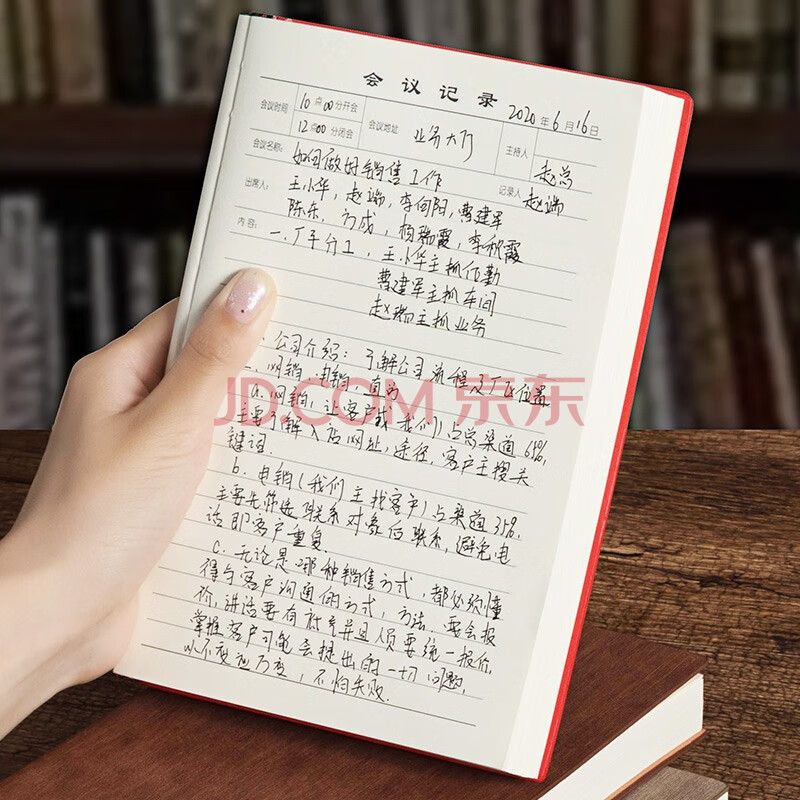 会议记录
2020年6月16日
会议时间 10点00分开会 会议地址 业务大厅 主持人 赵总
12点00分闭会
会议名称: 如何做好销售工作
记录人 赵瑞
出席人: 王小华,赵瑞,李向阳,曹建军
陈东,方成,杨瑞霞,李秋霞
内容: 一.厂子分工,王小华主抓后勤
曹建军主抓车间
赵瑞主抓业务
公司介绍:了解公司流程及厂区位置
一.网销,电销,直
a.网销,让客户找我们)占总渠道65%,
主要了解入店网址,途径,客户主搜关
键词.
b.电销(我们主找客户)占渠道35%.
主要先筛选联系对象后联系,避免电
话即客户重复.
C.无论是哪种销售方式,都必须懂
得与客户沟通的方式,方法.要会报
价,讲话要有并且人员要统一报价.
掌握客户可能会提出的一切问题,
以不变应万变,不怕失败.
JD.COM 京东